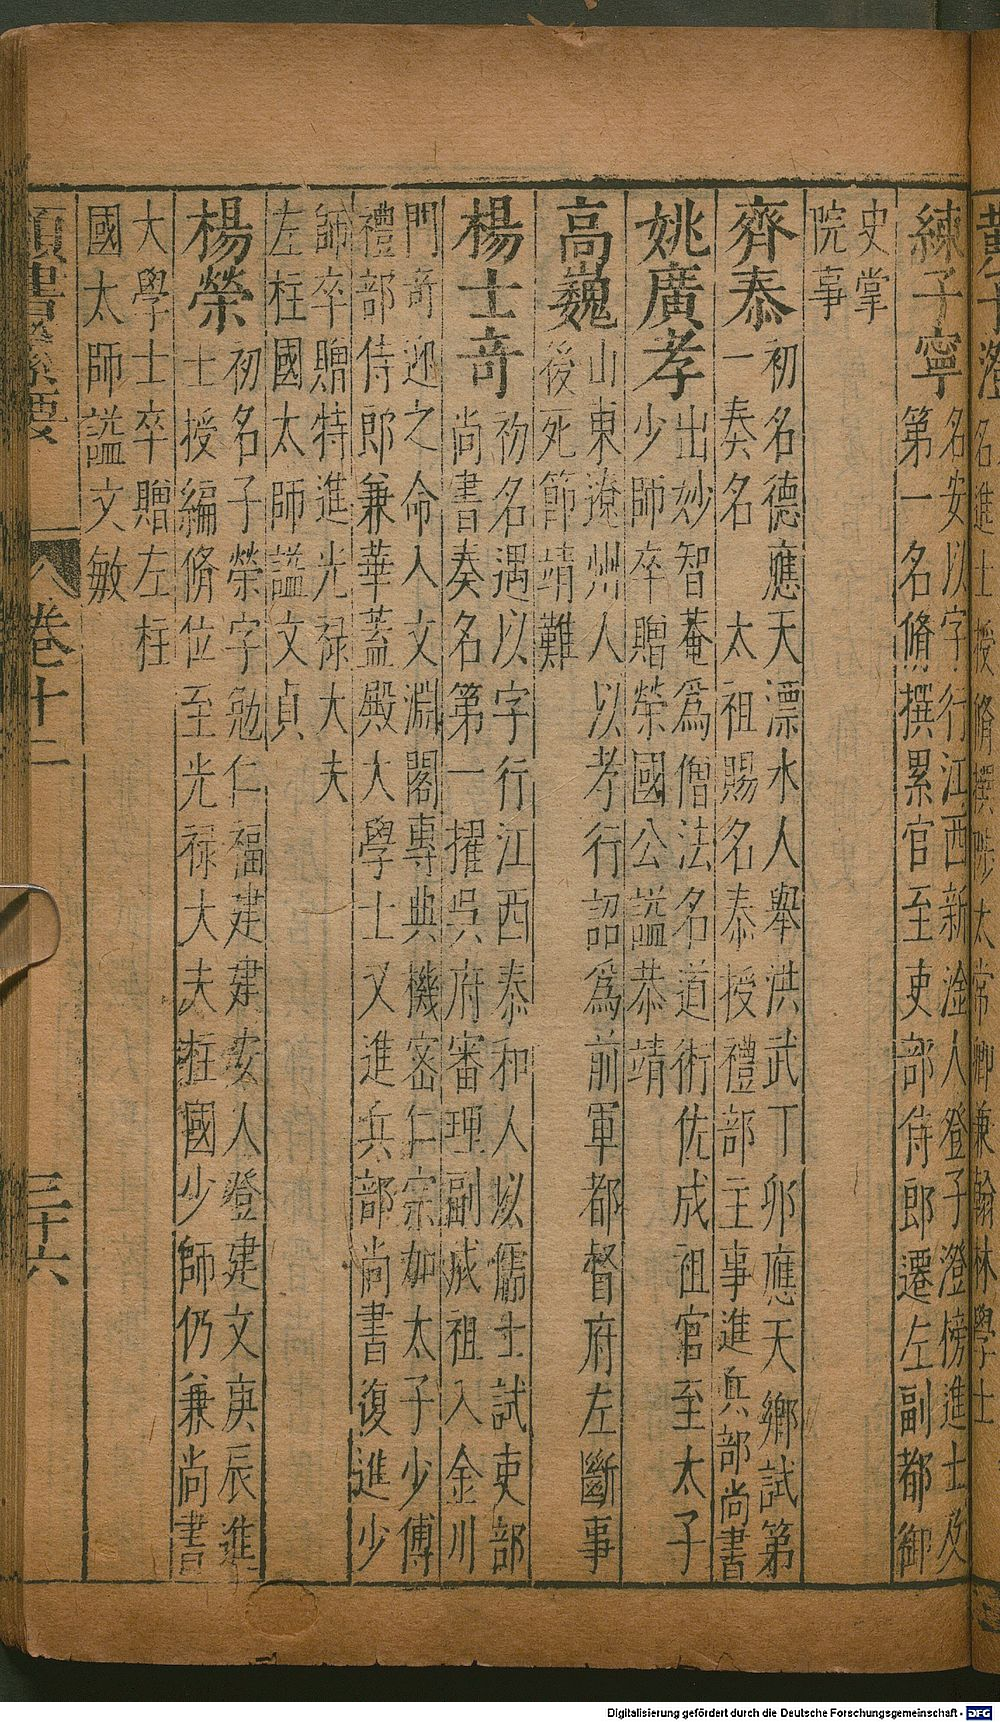 黃子澄
名進士授脩撰陟太常卿兼翰林學士
練子寧
名安以字行江西新淦人登子澄榜進士及
第一名脩撰累官至吏部侍郎遷左副都御
史掌
院事
齊泰
初名德應天漂水人舉洪武丁卯應天鄉試第
一奏名 太祖賜名泰授禮部主事進兵部尚書
姚廣孝
出妙智菴爲僧法名道術佐成祖官至太子
少師卒贈榮國公謚恭靖
高巍
山東遼州人以孝行詔爲前軍都督府左斷事
後死節靖難
楊士奇
初名遇以字行江西泰和人以儒士試吏部
尚書奏名第一擢吳府審理副成祖入金川
門奇迎之命入文淵閣專典機密仁宗加太子少傅
禮部侍郎兼華蓋殿大學士又進兵部尚書復進少
師卒贈特進光祿大夫
左柱國太師謚文貞
楊榮
初名子榮字勉仁福建建安人登建文庚辰進
士授編脩位至光祿大夫柱國少師仍兼尚書
大學士卒贈左柱
國太師謚文敏
類書纂要
卷十二
三十六
Digitalisierung gefördert durch die Deutsche Forschungsgemeinschaft - DFG